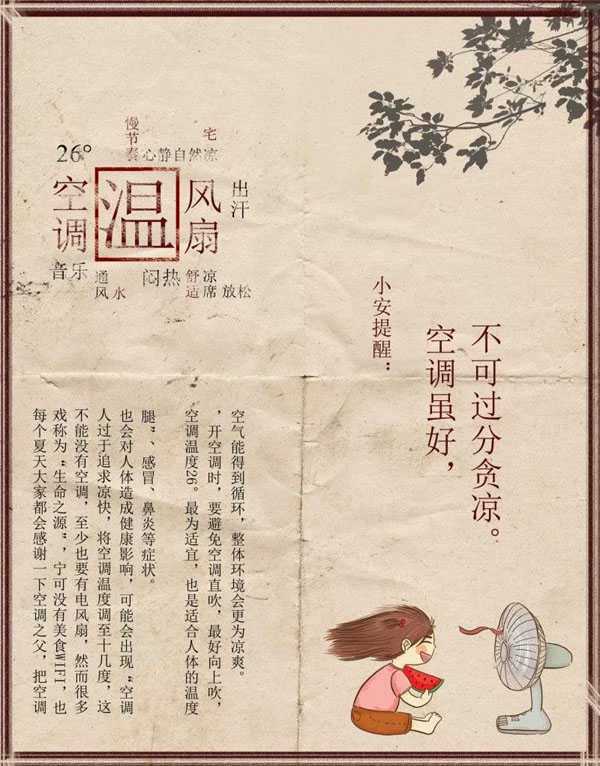 慢节奏
宅
26°
心静自然凉
空调
温
风扇
出汗
音乐
通风
水
闷热
舒适
凉席
放松
小安提醒：
空调虽好，
不可过分贪凉。
每个夏天大家都会感谢一下空调之父，把空调
戏称为“生命之源”，宁可没有美食WIFI，也
不能没有空调，至少也要有电风扇，然而很多
人过于追求凉快，将空调温度调至十几度，这
也会对人体造成健康影响，可能会出现“空调
腿”、感冒、鼻炎等症状。
空调温度26。最为适宜，也是适合人体的温度
，开空调时，要避免空调直吹，最好向上吹，
空气能得到循环，整体环境会更为凉爽。